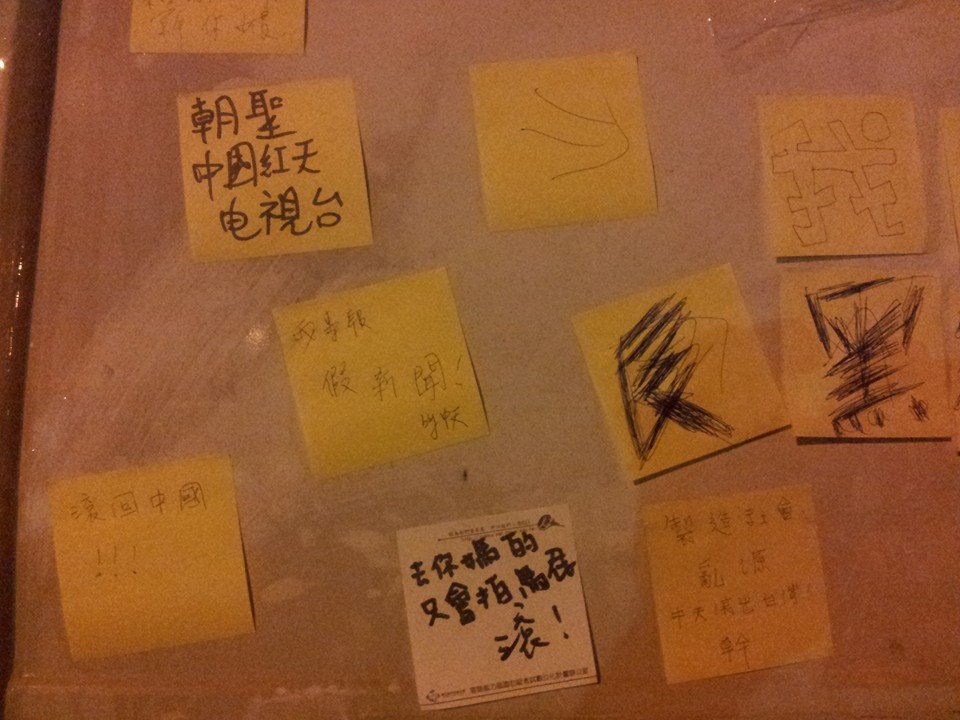 幹你娘
朝聖
中国紅天
电視台
我
假新聞!
反黑
滾回中國
!!!
去你媽的
又會拍馬屁
滾!
製造社會
亂源
中天滾出台灣!
幹